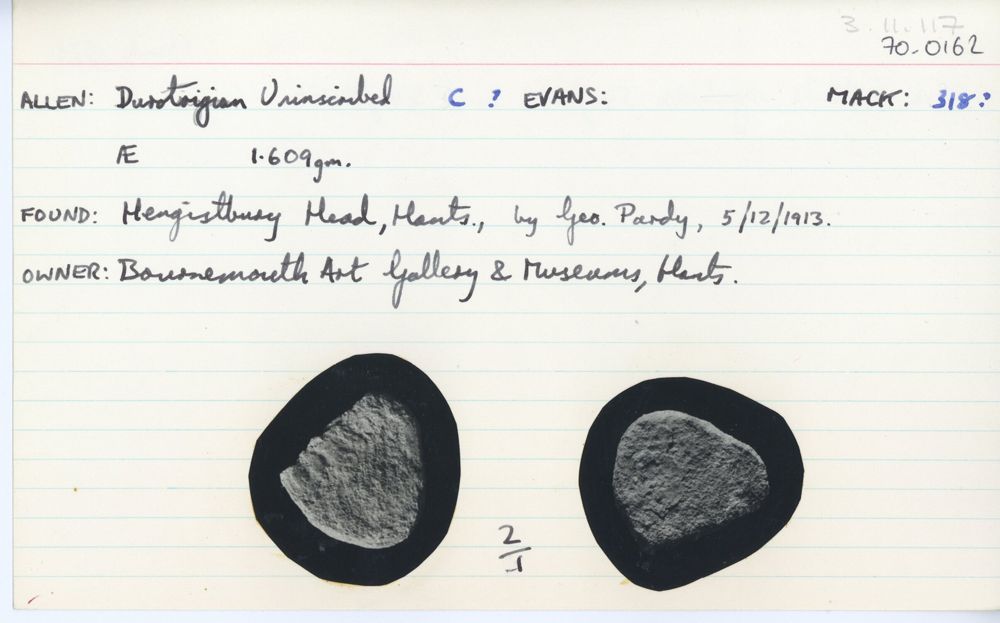 3.11.117
70-0162
ALLEN: Durotrigian Uninscribed C? EVANS: MACK: 318?
Æ 1.609gm.
FOUND: Hengistbury Head, Hants., by Geo. Pardy, 5/12/1913.
OWNER: Bournemouth Art Gallery & Museums, Hants.
2/1